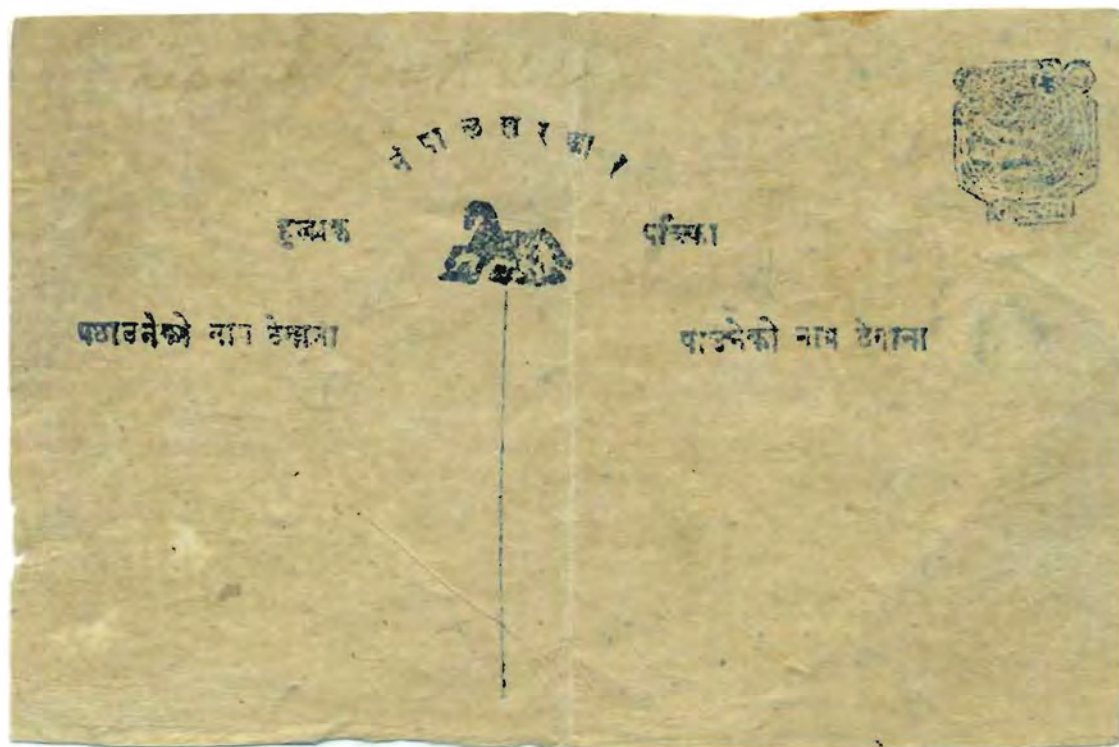 नेपाल सरकार
हुलाक पत्रिका
पठाउनेको नाम ठेगाना पाउनेको नाम ठेगाना